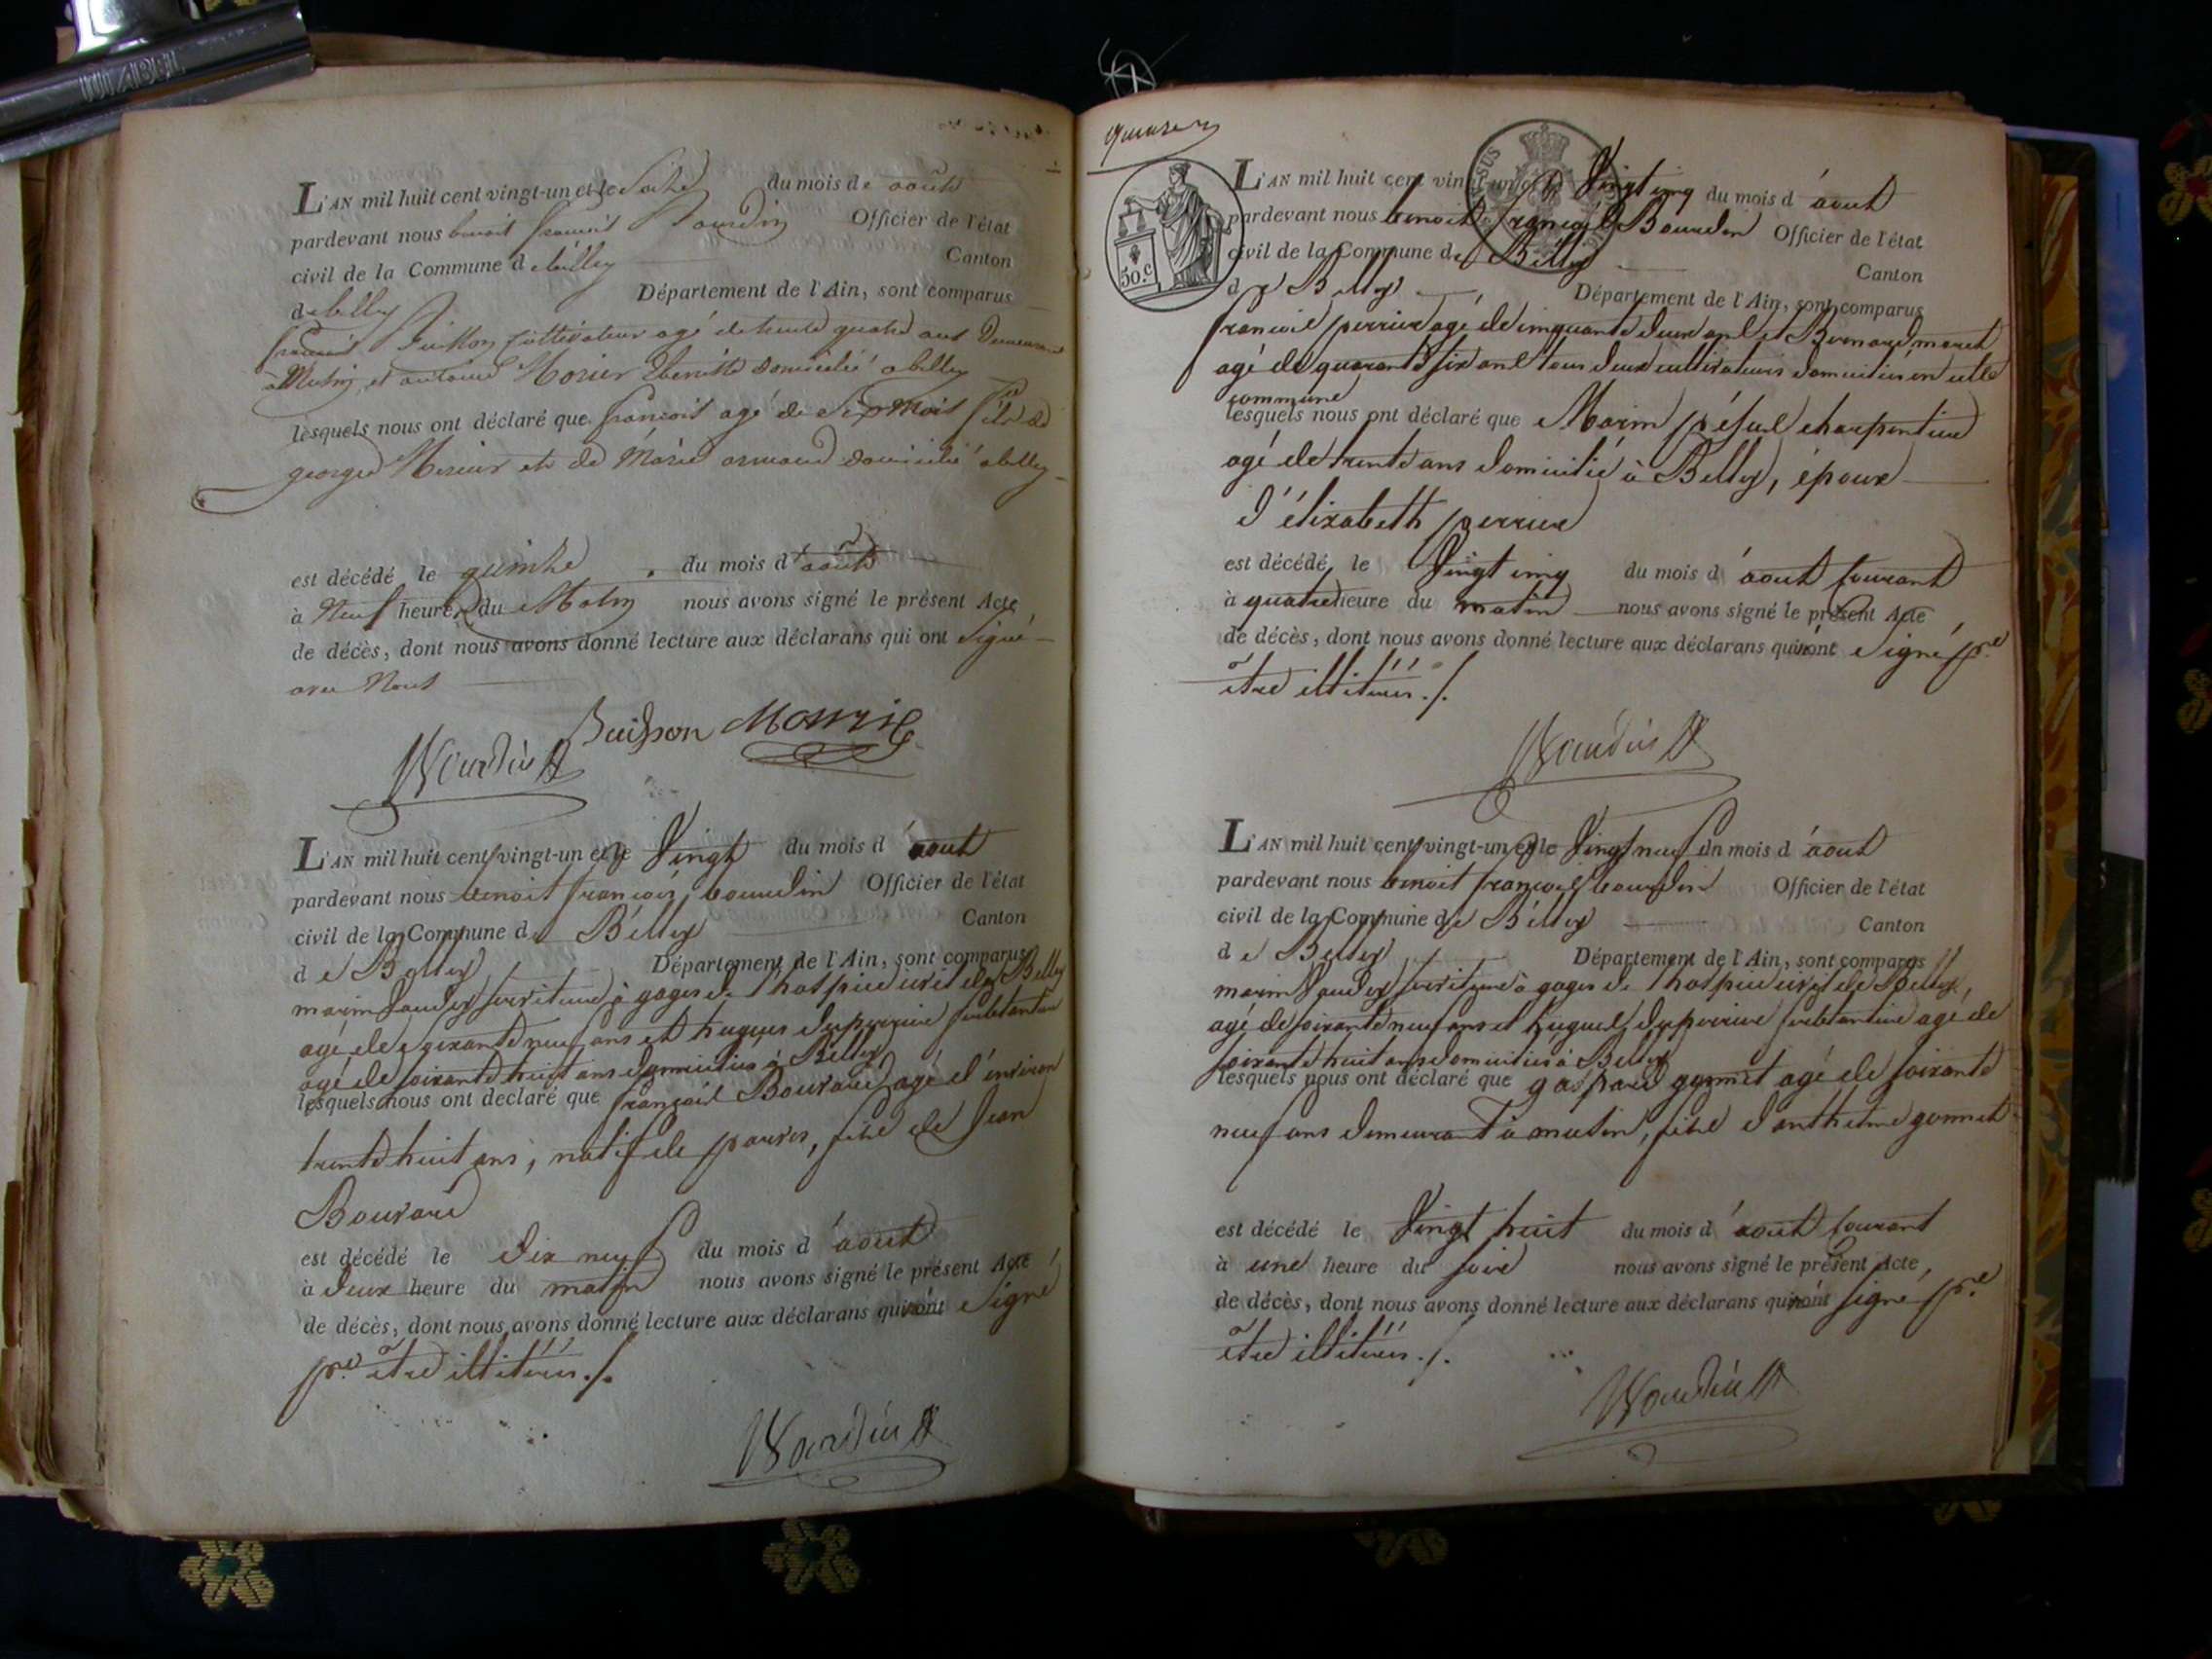 L'AN mil huit cent vingt-un et le Seize du mois de août
pardevant nous benoit françois Bourdin Officier de l'état
civil de la Commune de belley Canton
de belley Département de l'Ain, sont comparus
françois cultivateur agé de trente quatre ans
et antoine domicilié a belley
lesquels nous ont déclaré que françois agé de Six mois fils de
george et de Marie armand domicilié a belley
est décédé le quinze du mois d'août
à Neuf heure du Matin nous avons signé le présent Acte
de décès, dont nous avons donné lecture aux déclarans qui ont Signé
avec Nous
Bourdin Buisson
L'AN mil huit cent vingt-un et le Vingt du mois d'aout
pardevant nous benoit françois bourdin Officier de l'état
civil de la Commune de Belley Canton
de Belley Département de l'Ain, sont comparus
marin serviteur à gages de l'hospice civil de Belley
agé de soixante neuf ans et hugues duperrier
agé de soixante huit ans domiciliés à Belley
lesquels nous ont déclaré que françois Bouvard agé d'environ
trente huit ans, natif de fils de Jean
Bouvard
est décédé le dix neuf du mois d'aout
à deux heure du matin nous avons signé le présent Acte
de décès, dont nous avons donné lecture aux déclarans qui n'ont Signé
pr. être illitérés ./.
Bourdin
50.c
L'AN mil huit cent vingt-un et le Vingt cinq du mois d'aout
pardevant nous benoit françois Bourdin Officier de l'état
civil de la Commune de Belley Canton
de Belley Département de l'Ain, sont comparus
françois perrier agé de cinquante deux ans et Bernard
agé de quarante six ans tous deux cultivateurs domiciliés en cette
commune
lesquels nous ont déclaré que Marin charpentier
agé de trente ans domicilié à Belley, époux
d'élizabeth perrier
est décédé le Vingt cinq du mois d'aout courant
à quatre heure du matin nous avons signé le présent Acte
de décès, dont nous avons donné lecture aux déclarans qui n'ont Signé pr.
être illitérés ./.
Bourdin
L'AN mil huit cent vingt-un et le Vingt neuf du mois d'aout
pardevant nous benoit françois bourdin Officier de l'état
civil de la Commune de Belley Canton
de Belley Département de l'Ain, sont comparus
marin serviteur à gages de l'hospice civil de Belley,
agé de soixante neuf ans et hugues duperrier agé de
soixante huit ans domiciliés à Belley
lesquels nous ont déclaré que gaspard gonnet agé de soixante
neuf ans demeurant à fils d'anthelme gonnet
est décédé le Vingt huit du mois d'aout courant
à une heure du soir nous avons signé le présent Acte
de décès, dont nous avons donné lecture aux déclarans qui n'ont signé pr.
être illitérés ./.
Bourdin